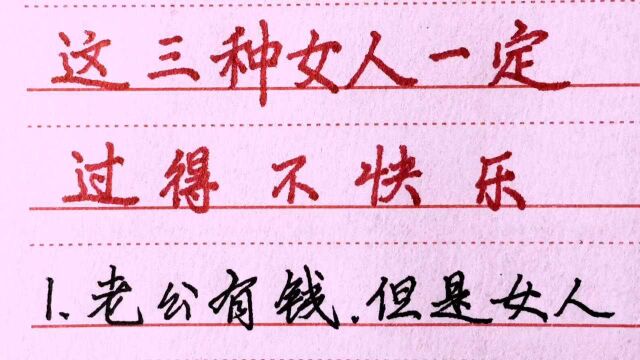 这三种女人一定
过得不快乐
1.老公有钱.但是女人